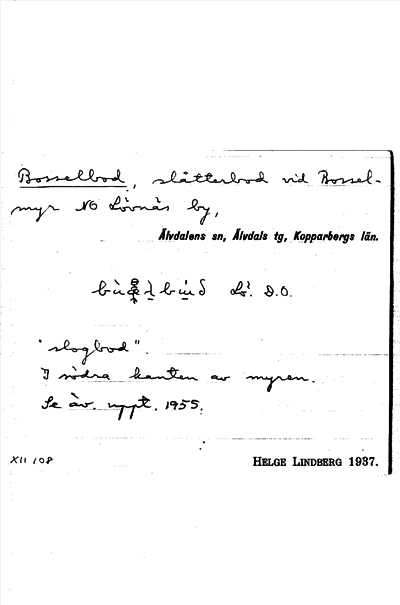 Bosselbod, slåtterbod vid Bossel-
myr NO Lövnäs by,
Älvdalens sn, Älvdals tg, Kopparbergs län.
Lö. D.O.
"slogbod".
I södra kanten av myren.
Se äv. uppt. 1955.
XII 108
HELGE LINDBERG 1937.